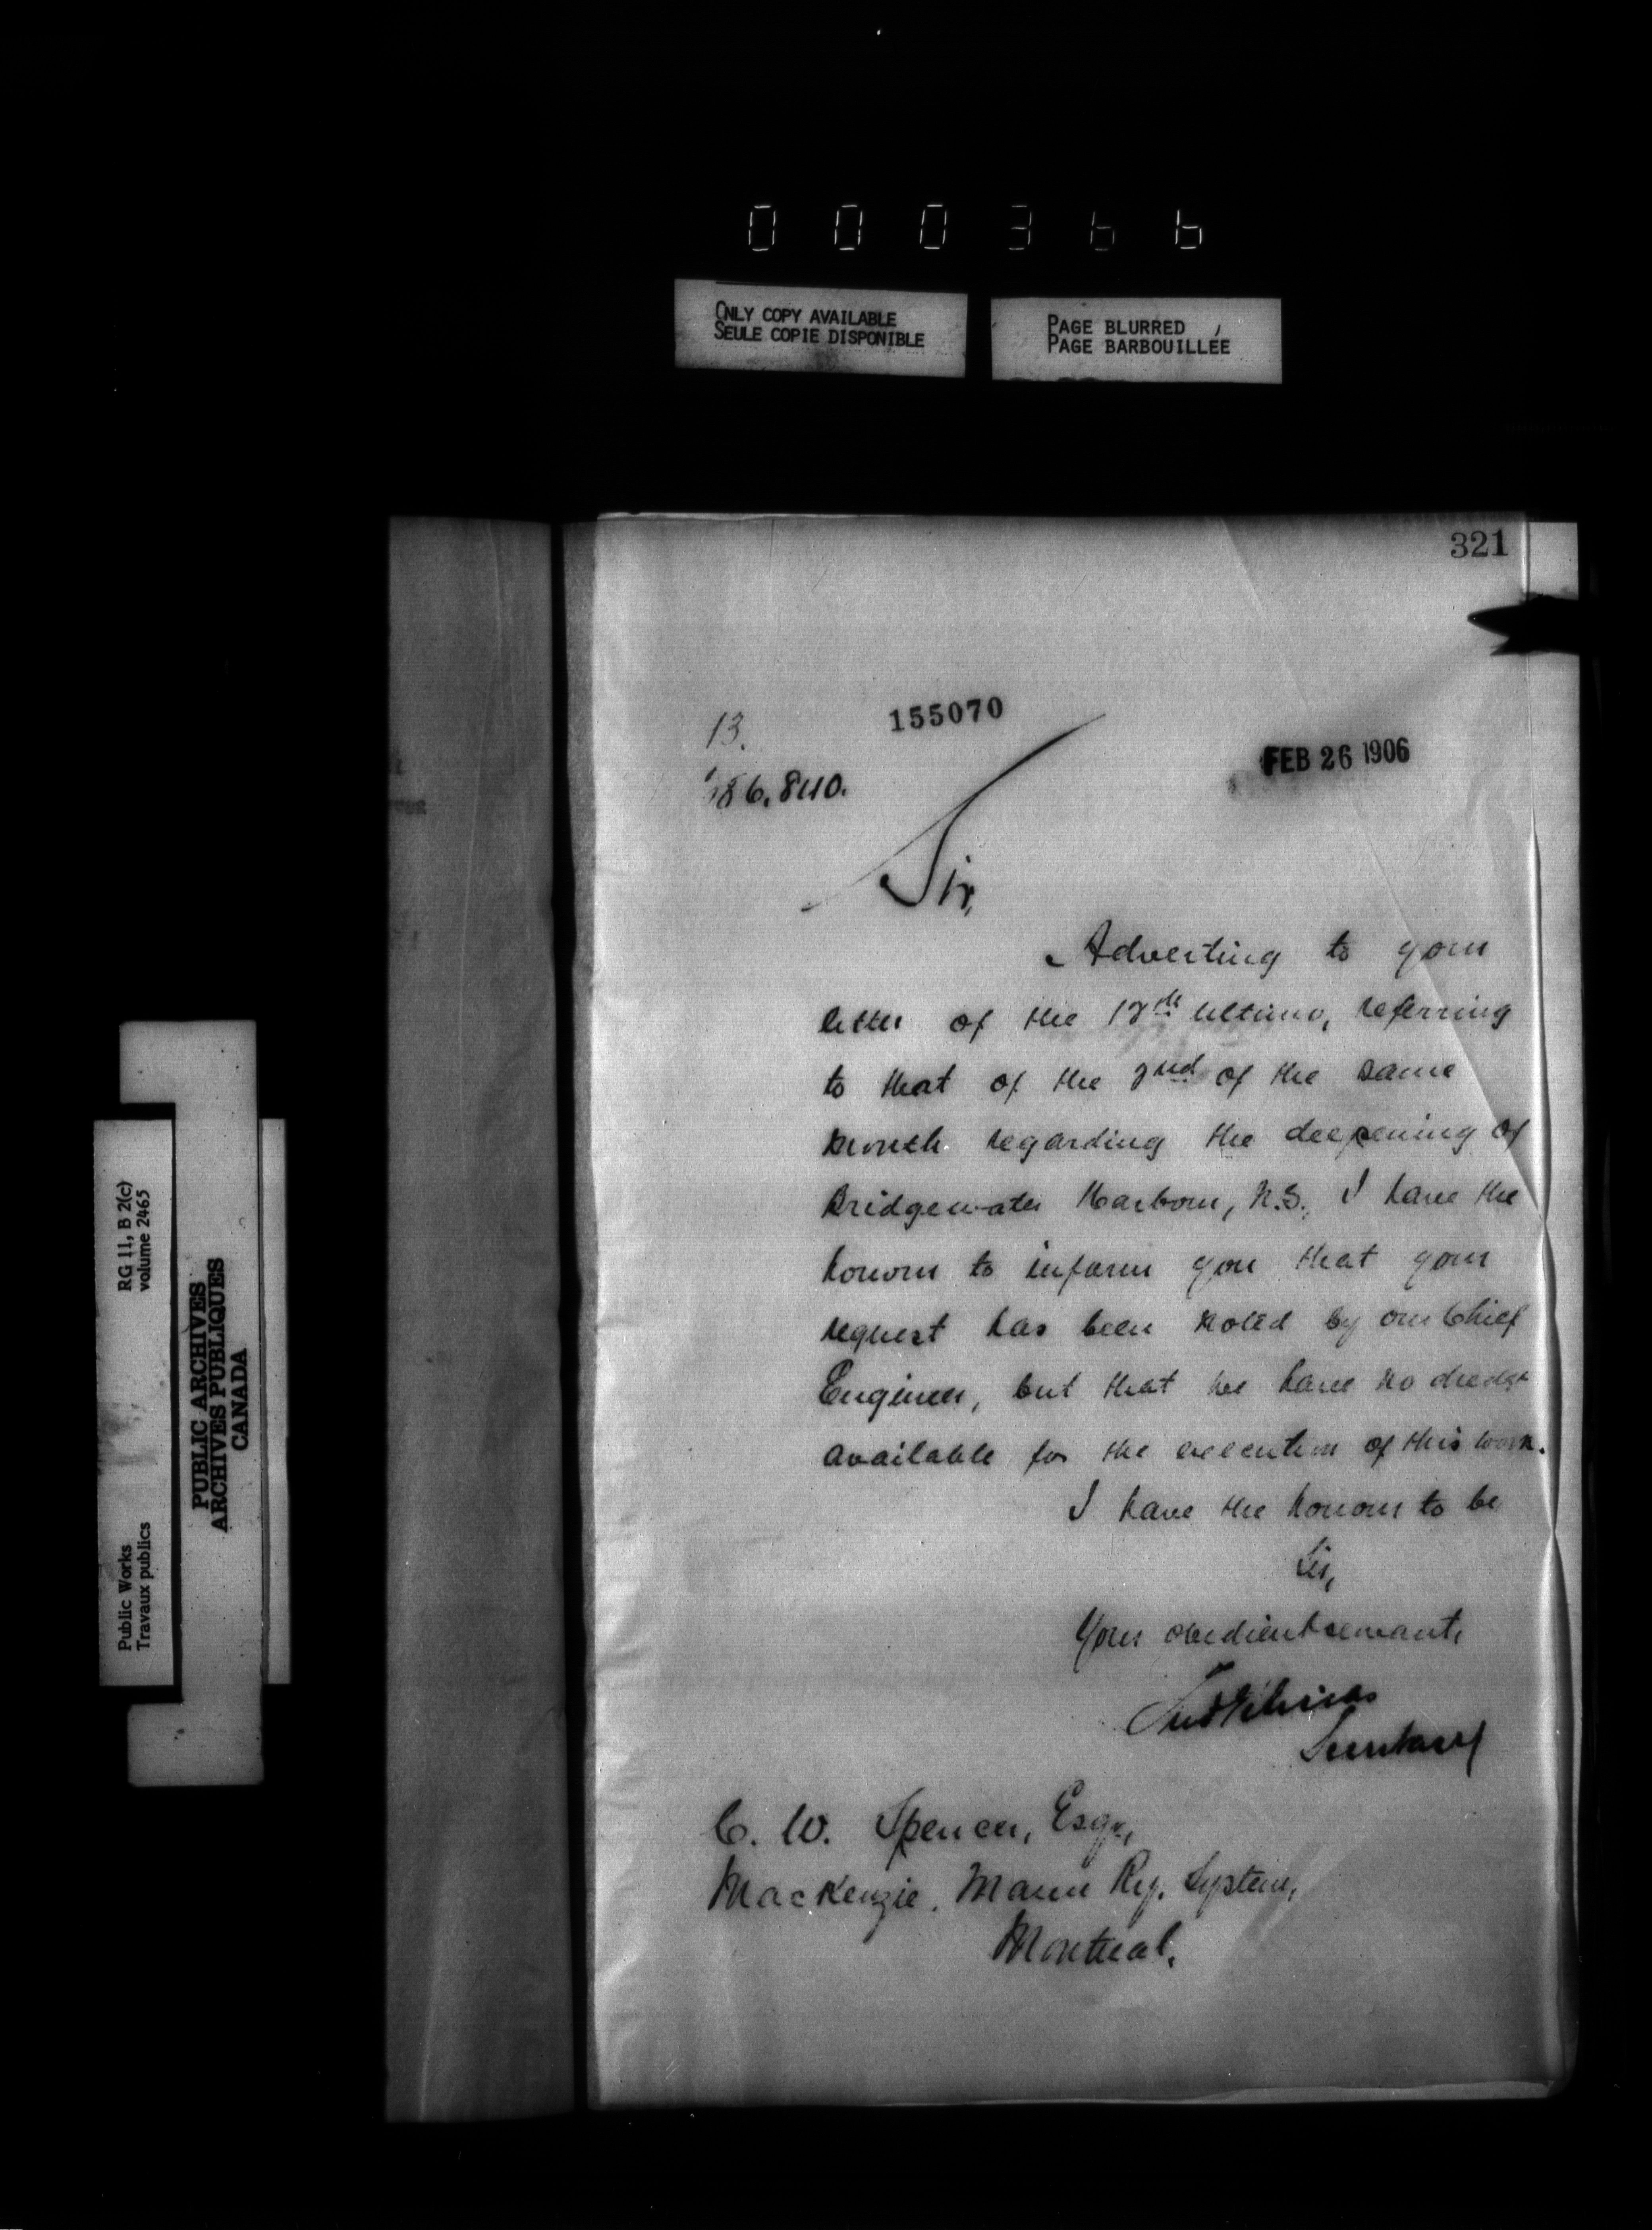 000366
ONLY COPY AVAILABLE
SEULE COPIE DISPONIBLE
PAGE BLURRED
PAGE BARBOUILLÉE
321
13.
155070
FEB 26 1906
86,840.
Sir,
Advertising to your
letter of the th ultimo, referring
to that of the 2nd of the same
month regarding the deepening of
Bridgewater Harbour, N.S., I have the
honour to inform you that your
request has been noted by our Chief
Engineer, but that we have no dredge
available for the execution of this work.
I have the honour to be
Sir,
Your obedient servant,
Secretary
C. W. Spencer, Esqr.,
MacKenzie, Mann Ry. System,
Montreal.
RG 11, B 2(c)
volume 2465
Public Works
Travaux publics
PUBLIC ARCHIVES
ARCHIVES PUBLIQUES
CANADA